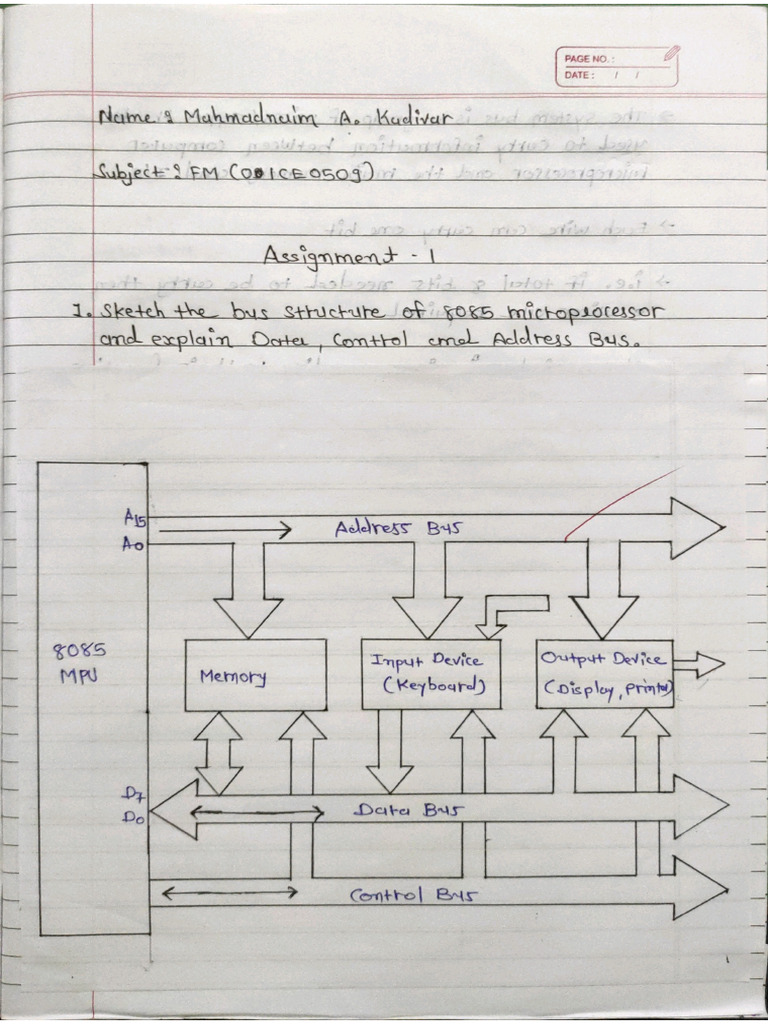 PAGE NO. :
DATE : / /
Name : Mahmadnaim A. Kadivar
Subject : FM (01CE0509)
Assignment - 1
1. Sketch the bus structure of 8085 microprocessor
and explain Data, Control and Address Bus.
A15
Address Bus
A0
8085
MPU
Memory
Input Device
(Keyboard)
Output Device
(Display, Printer)
D7
D0
Data Bus
Control Bus